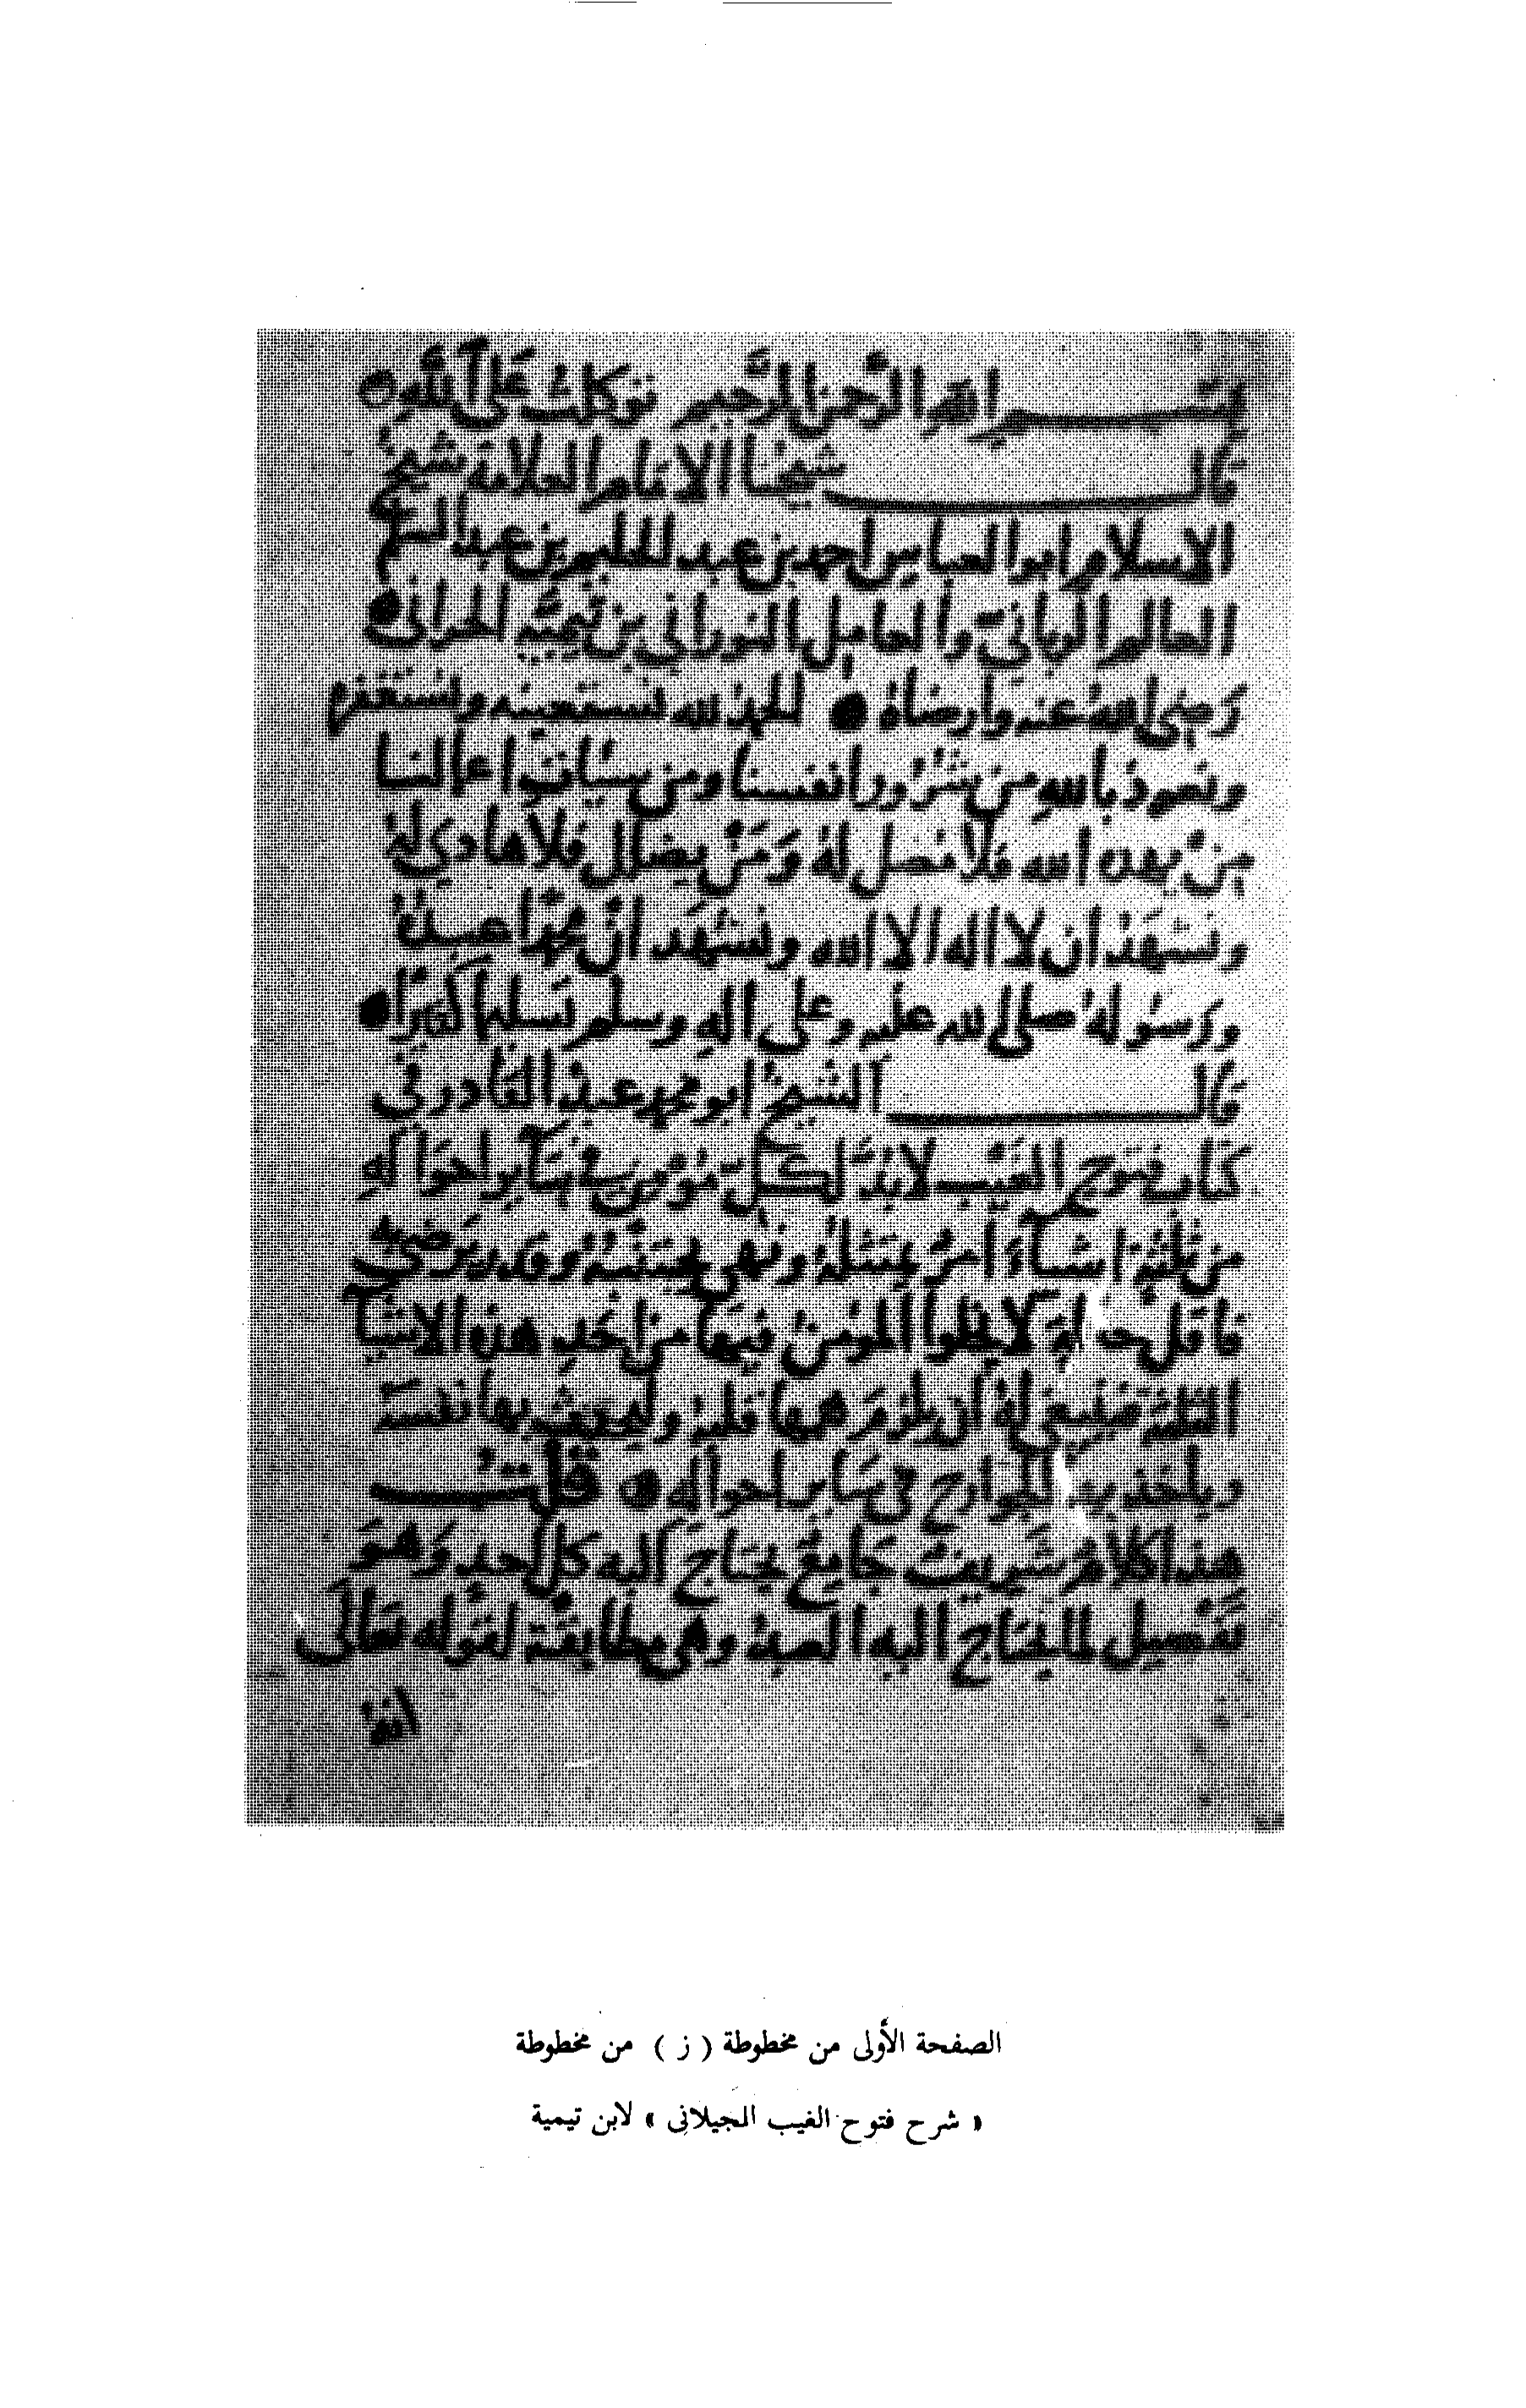 بســـم الله الرحمن الرحيم توكلت على الله
قالــــ شيخنا الامام العلامة شيخ
الاسلام ابو العباس احمد بن عبد الحليم بن عبد السلم
العالم الرباني والعامل النوراني بن تيميه الحراني
رضي الله عنه وارضاه الحمد لله نستعينه ونستغفره
ونعوذ بالله من شرور انفسنا ومن سيات اعمالنا
من يهده الله فلا مضل له ومن يضلل فلا هادي له
ونشهد ان لا اله الا الله ونشهد ان محمدا عبده
ورسوله صلى الله عليه وعلى اله وسلم تسليما كثيرا
قالــــ الشيخ ابو محمد عبد القادر في
كتاب فتوح الغيب لا بد لكل مؤمن في سآير احواله
من ثلثة اشيآء امر يمتثله ونهي يجتنبه وقدر يرضى به
فاقل حالة لا يخلوا المؤمن فيها من احد هذه الاشيآ
الثلثة فينبغي له ان يلزم همها قلبه وليحدث بها نفسه
وياخذ بها الجوارح في ساير احواله قلت
هذا كلام شريف جامع يحتاج اليه كل احد وهو
تفصيل لما يحتاج اليه العبد وهي مطابقة لقوله تعالى
انه
الصفحة الأولى من مخطوطة ( ز ) من مخطوطة
« شرح فتوح الغيب للجيلانى » لابن تيمية